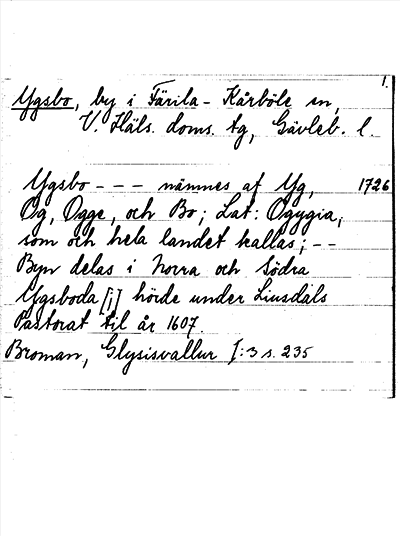 1.
Ygsbo, by i Färila - Kårböle sn,
V. Häls. doms. tg, Gävleb. l.
Ygsbo - - - nämnes af Yg, 1726
Og, Ogge, och Bo; Lat: Ogygia,
som och hela landet kallas; - -
Byn delas i Norra och Södra
Ygsboda [i] hörde under Liusdals
Pastorat til år 1607.
Broman, Glysisvallur I:3 s. 235